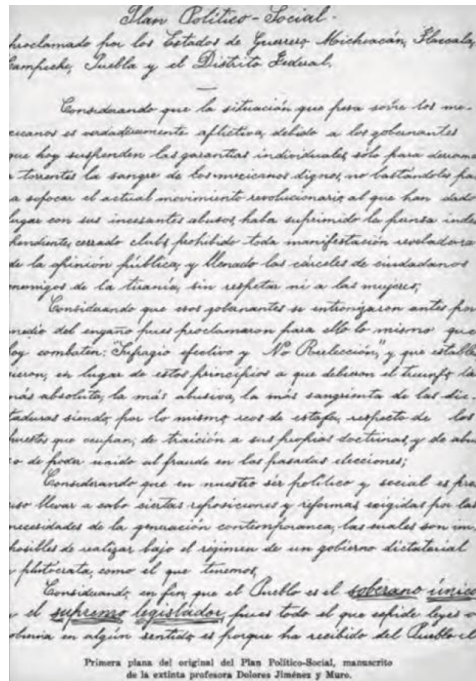 Plan Político-Social.
proclamado por los Estados de Guerrero, Michoacán, Tlaxcala,
Campeche, Puebla y el Distrito Federal.
Considerando que la situación que pesa sobre los me-
xicanos es verdaderamente aflictiva, debido a los gobernantes
que hoy suspenden las garantías individuales sólo para derramar
a torrentes la sangre de los mexicanos dignos, no bastándoles pa-
ra sofocar el actual movimiento revolucionario, al que han dado
lugar con sus incesantes abusos, haber suprimido la prensa inde-
pendiente, cerrado clubs, prohibido toda manifestación reveladora
de la opinión pública, y llenado las cárceles de ciudadanos
enemigos de la tiranía, sin respetar ni a las mujeres;
Considerando que esos gobernantes se entronizaron antes por
medio del engaño pues proclamaron para ello lo mismo que
hoy combaten: "Sufragio efectivo y No Reelección", y que estable-
cieron, en lugar de estos principios a que debieron el triunfo, la
más absoluta, la más abusiva, la más sangrienta de las dic-
taduras siendo, por lo mismo, reos de estafa, respecto de los
puestos que ocupan; de traición a sus propias doctrinas, y de abu-
so de poder unido al fraude en las pasadas elecciones;
Considerando que en nuestro ser político y social es pre-
ciso llevar a cabo ciertas reposiciones y reformas exigidas por las
necesidades de la generación contemporanea, las cuales son im-
posibles de realizar bajo el régimen de un gobierno dictatorial
y plutócrata, como el que tenemos,
Considerando, en fin, que el Pueblo es el soberano único
y el supremo legislador, pues todo el que expide leyes o
gobierna en algún sentido es porque ha recibido del Pueblo el
Primera plana del original del Plan Político-Social, manuscrito
de la extinta profesora Dolores Jiménez y Muro.